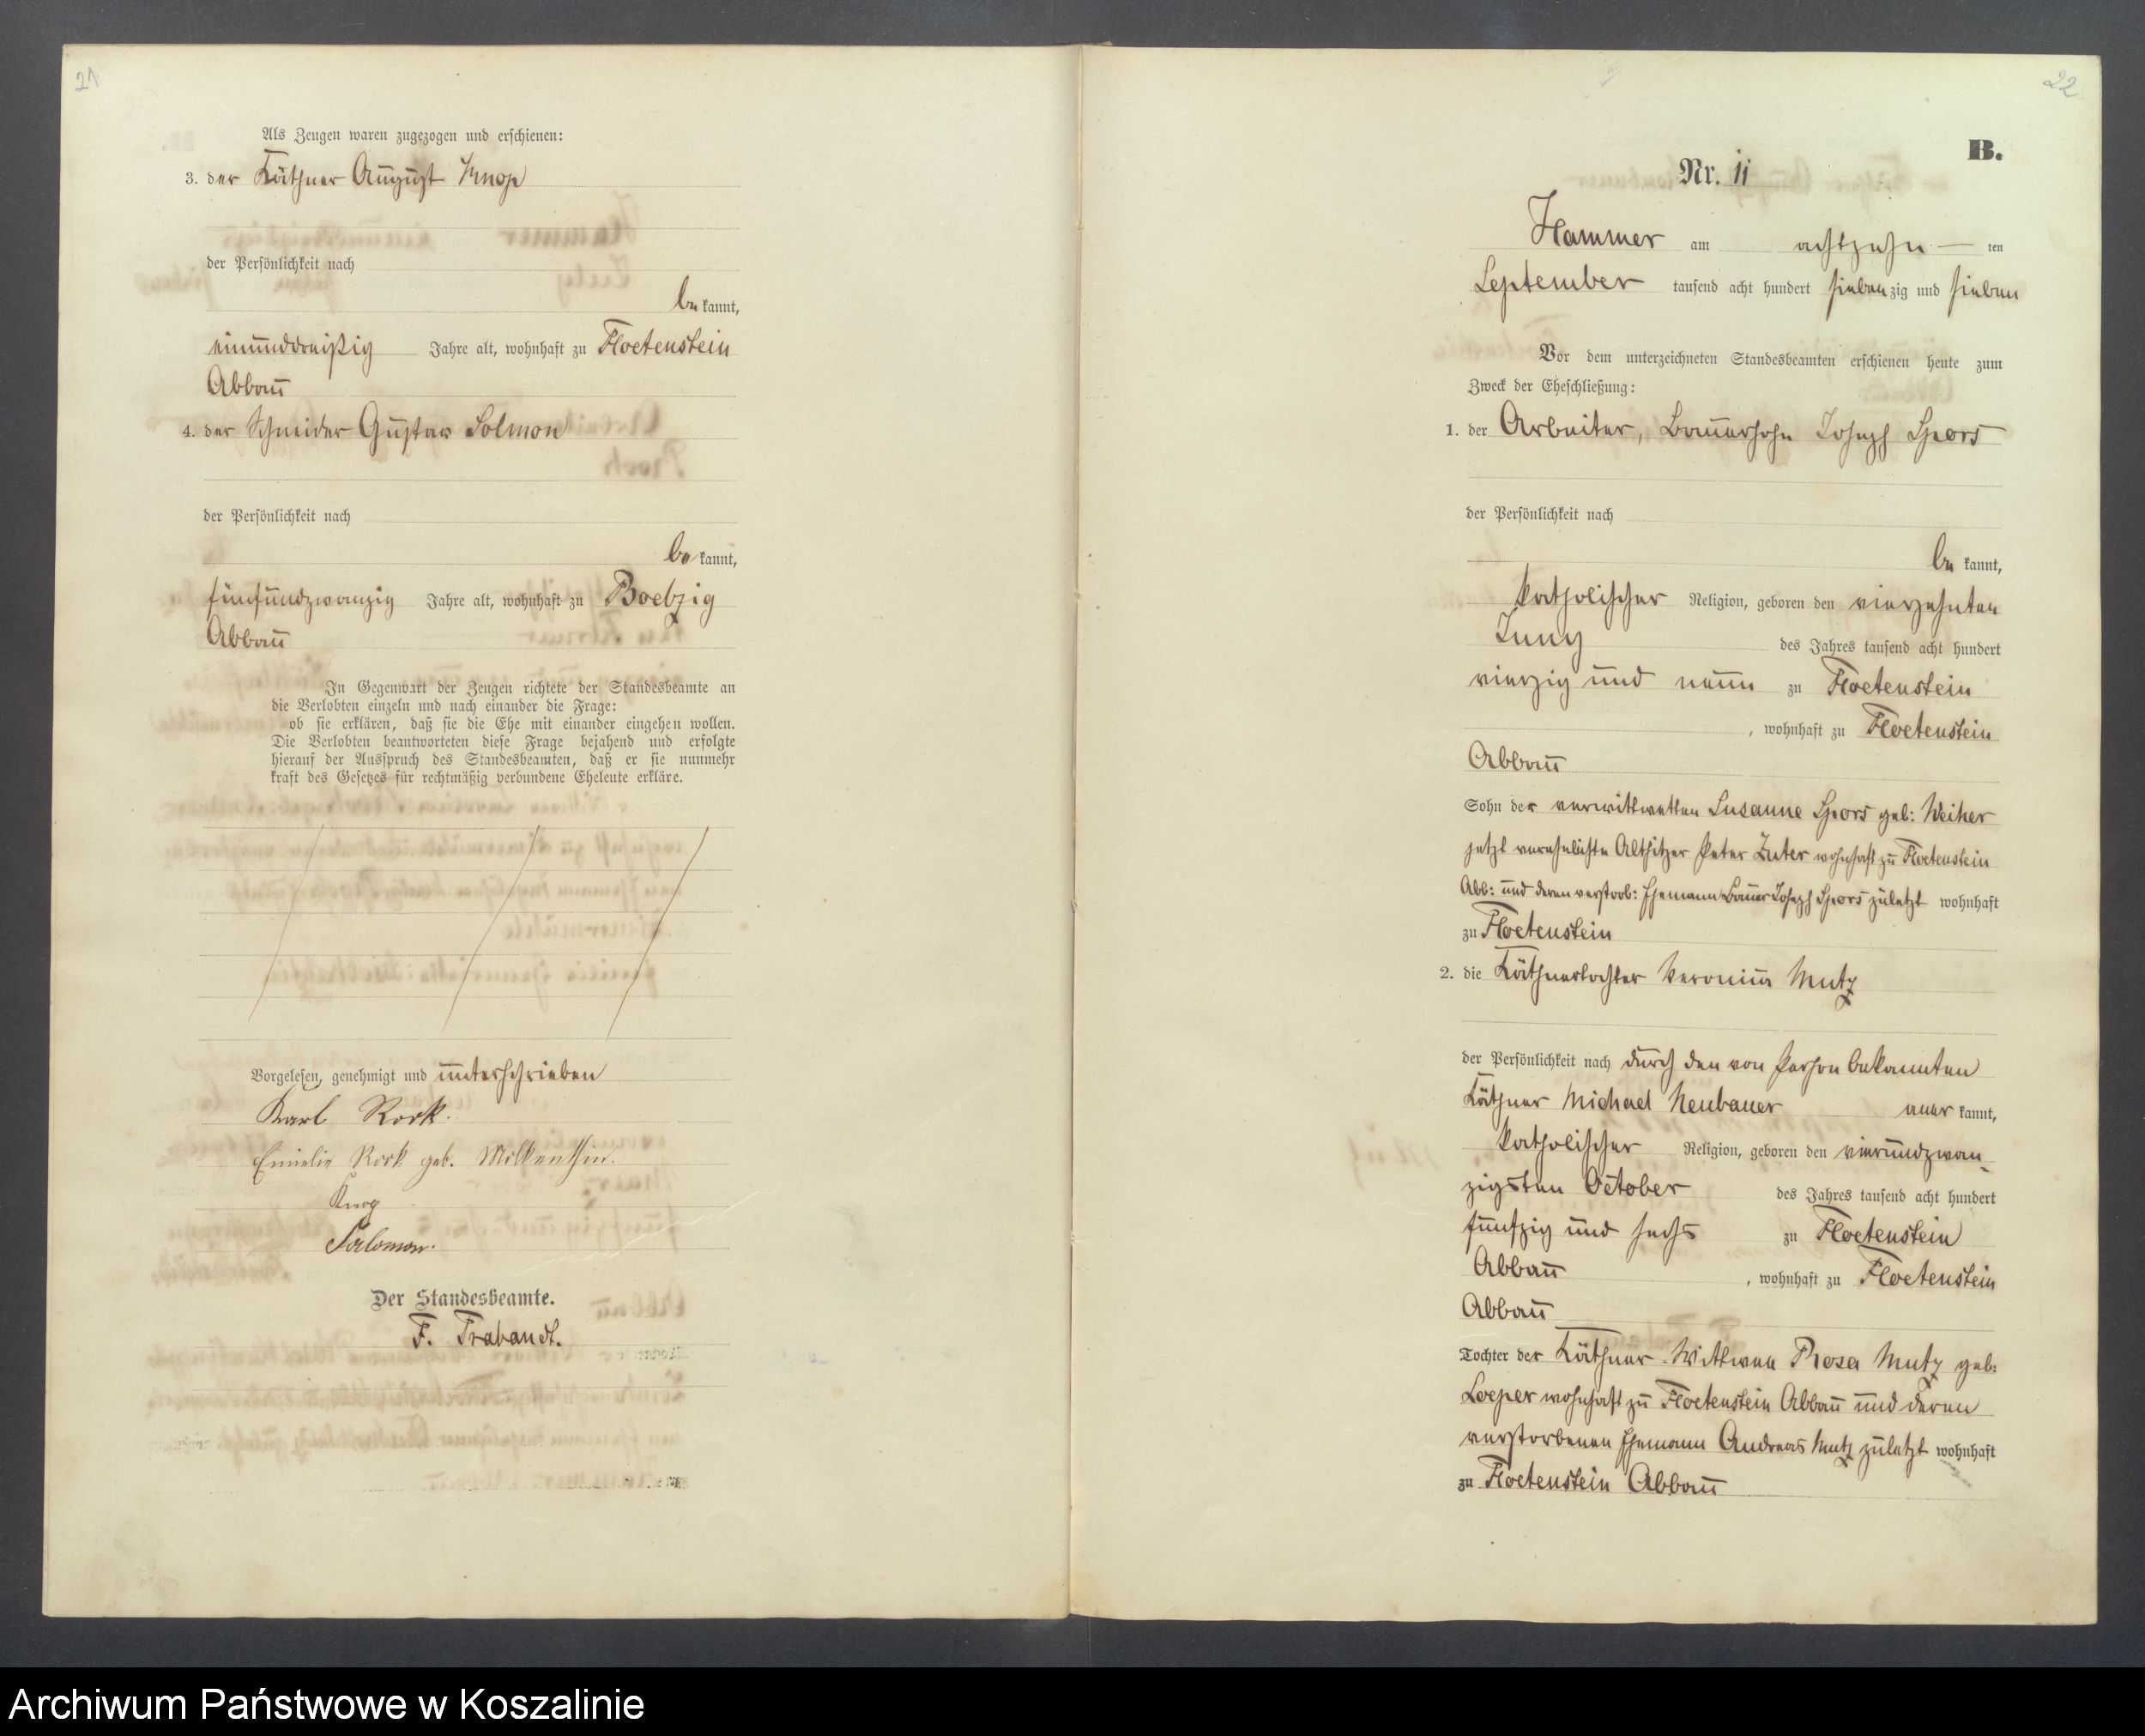 21
Als Zeugen waren zugezogen und erschienen:
3. der Käthner August Knop
der Persönlichkeit nach
be kannt,
einunddreißig Jahre alt, wohnhaft zu Floetenstein
Abbau
4. der Schneider Gustav Solmon
der Persönlichkeit nach
be kannt,
fünfundzwanzig Jahre alt, wohnhaft zu Boelzig
Abbau
In Gegenwart der Zeugen richtete der Standesbeamte an
die Verlobten einzeln und nach einander die Frage:
ob sie erklären, daß sie die Ehe mit einander eingehen wollen.
Die Verlobten beantworteten diese Frage bejahend und erfolgte
hierauf der Ausspruch des Standesbeamten, daß er sie nunmehr
kraft des Gesetzes für rechtmäßig verbundene Eheleute erkläre.
Vorgelesen, genehmigt und unterschrieben
Karl Rook
Emielie Rook geb. Milkenthin.
Knop
Salomon.
Der Standesbeamte.
F. Trabandt.
22
B.
Nr. 11
Hammer am achtzehn — ten
September tausend acht hundert siebenzig und sieben
Vor dem unterzeichneten Standesbeamten erschienen heute zum
Zweck der Eheschließung:
1. der Arbeiter, Bauersohn Joseph Spors
der Persönlichkeit nach
be kannt,
katholischer Religion, geboren den vierzehnten
Juny des Jahres tausend acht hundert
vierzig und neun zu Floetenstein
, wohnhaft zu Floetenstein
Abbau
Sohn der verwittwetten Susanne Spors geb: Weiher
jetzt verehelichte Altsitzer Peter Zuter wohnhaft zu Floetenstein
Abb: und deren verstorb: Ehemann Bauer Joseph Spors zuletzt wohnhaft
zu Floetenstein
2. die Käthnertochter Veronica Mutz
der Persönlichkeit nach durch den von Person bekannten
Käthner Michael Neubauer aner kannt,
katholischer Religion, geboren den vierundzwan-
zigsten October des Jahres tausend acht hundert
fünfzig und sechs zu Floetenstein
Abbau , wohnhaft zu Floetenstein
Abbau
Tochter der Käthner Wittwee Rosa Mutz geb:
Loeper wohnhaft zu Floetenstein Abbau und deren
verstorbenen Ehemann Andreas Mutz zuletzt wohnhaft
zu Floetenstein Abbau
Archiwum Państwowe w Koszalinie